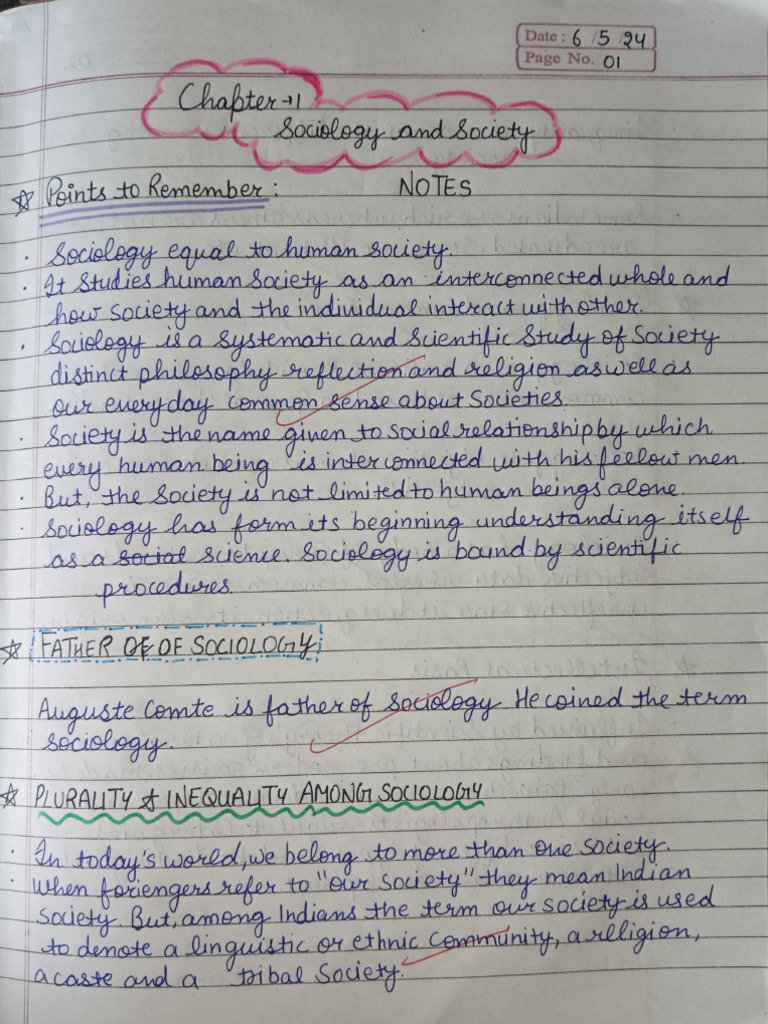 Date: 6/5/24
Page No. 01
Chapter→1
Sociology and Society
☆ Points to Remember: NOTES
· Sociology equal to human society.
· It studies human Society as an interconnected whole and
how society and the individual interact with other.
· Sociology is a systematic and Scientific Study of Society
distinct philosophy reflection and religion as well as
our everyday common sense about Societies.
· Society is the name given to social relationship by which
every human being is interconnected with his feellow men.
· But, the Society is not limited to human beings alone.
· Sociology has form its beginning understanding itself
as a social science. Sociology is bound by scientific
procedures.
☆ FATHER OF OF SOCIOLOGY
Auguste Comte is father of Sociology. He coined the term
sociology.
☆ PLURALITY & INEQUALITY AMONG SOCIOLOGY
· In today's world, we belong to more than one society.
· When foriengers refer to "our society" they mean Indian
society. But, among Indians the term our society is used
to denote a linguistic or ethnic community, a religion,
a caste and a tribal Society.